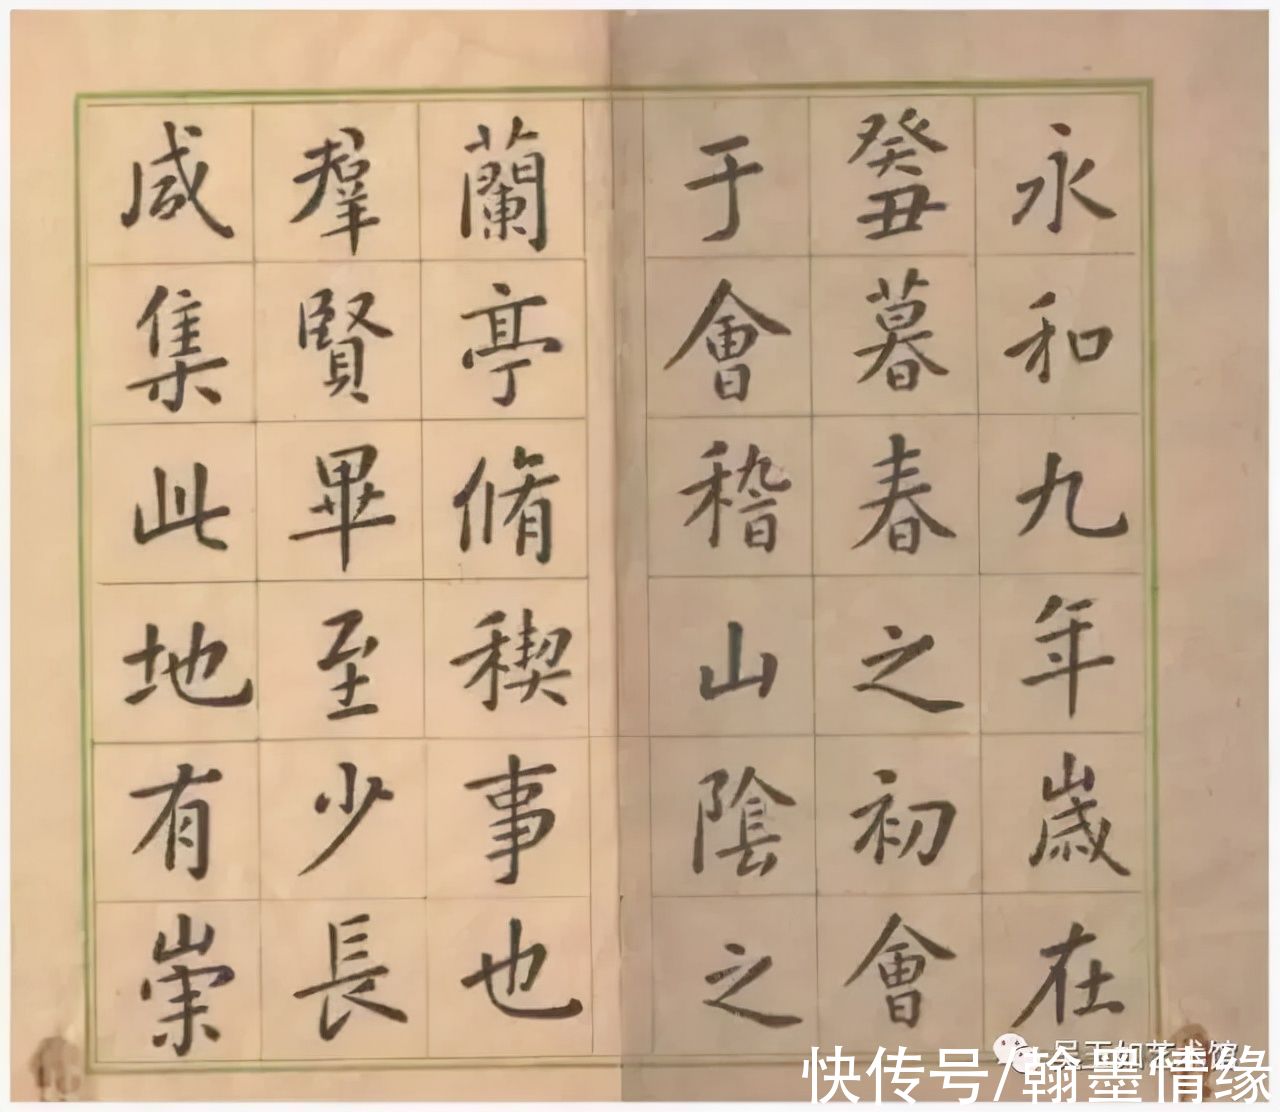 永和九年歲在
癸丑暮春之初會
于會稽山陰之
蘭亭脩稧事也
羣賢畢至少長
咸集此地有崇
吴玉如艺术馆
快传号/翰墨情缘